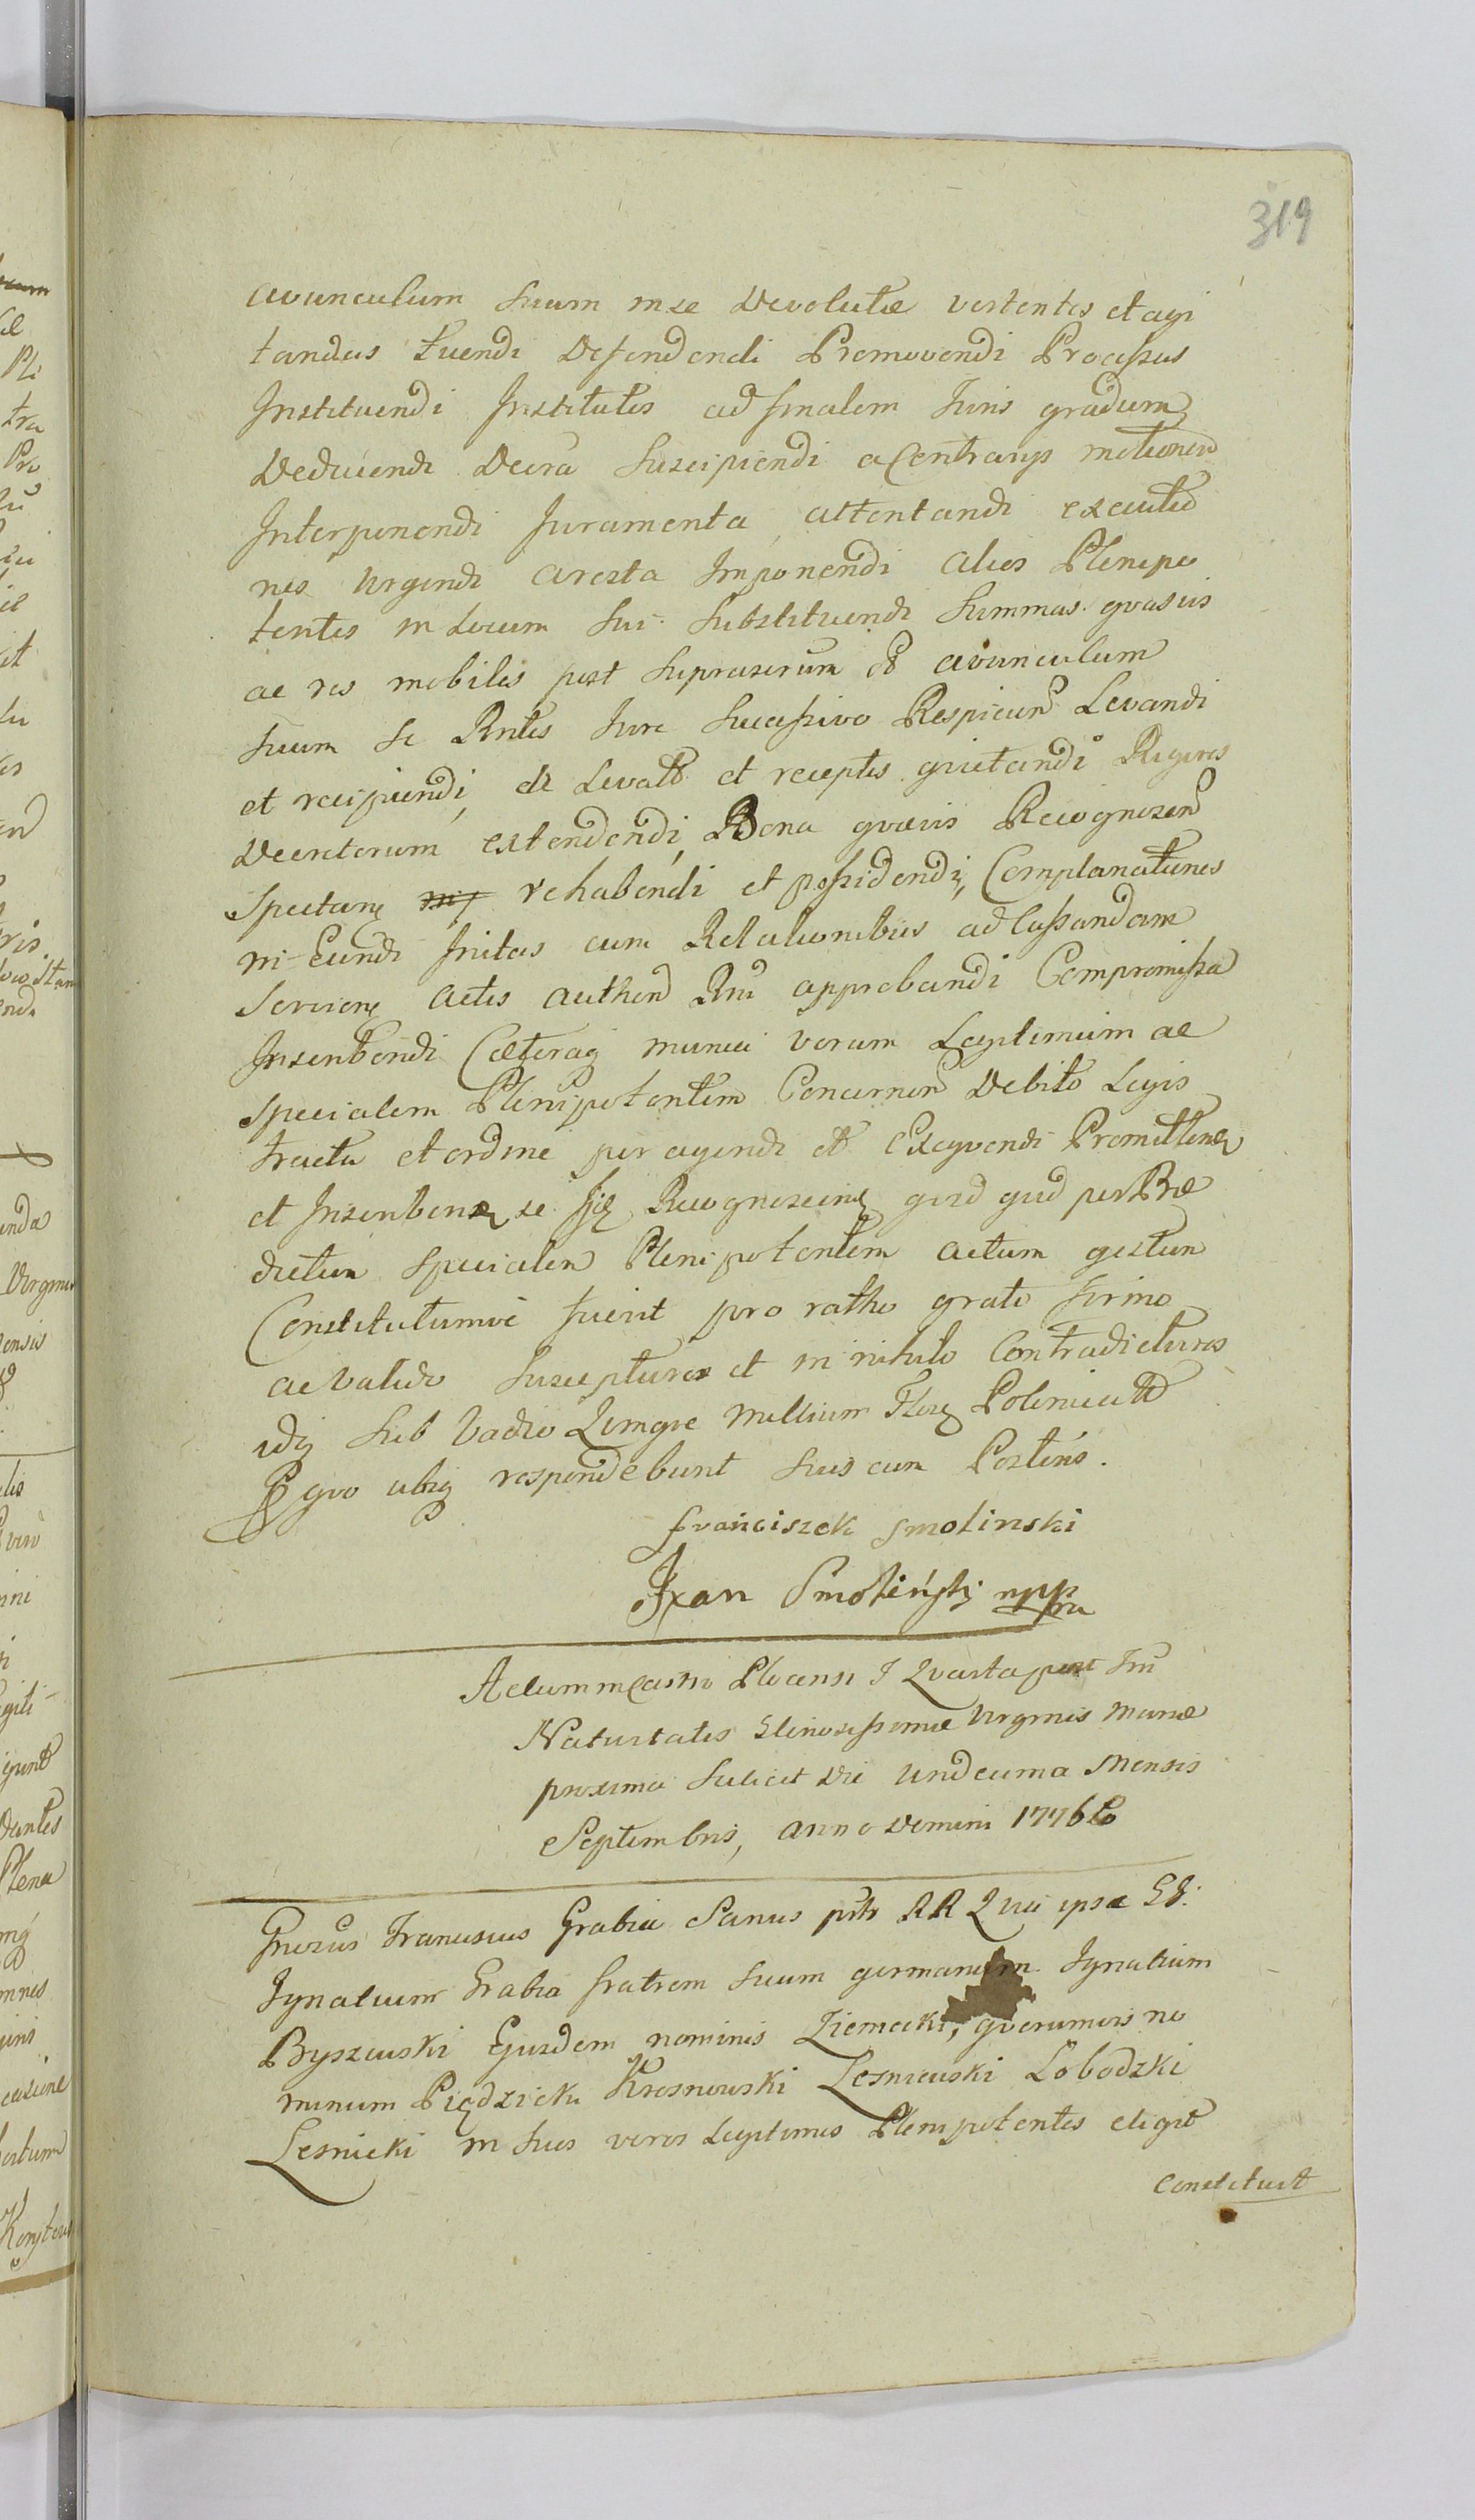 319
avunculum suum in se Devolutae vertentes et agi
tandas Tuendi Defendendi Promovendi Processus
Instituendi Institutes ad finalem Juris gradum
Deducendi Decra Suscipiendi a Contrarys motionem
Interponendi Juramenta attentandi executio
nes Urgendi aresta Imponendi alios Plenipo
tentes in Locum Sui Substituendi Summas qvasvis
ac res mobiles post Suprascrum ob avunculum
suum Se Rntes Jure Sucessivo Respicien Levandi
et recipiendi, de Levatis et receptis qvietandi Rigores
Decretorum extendendi, Bona qvaevis Recognoscen
Spectan rehabendi et possidendi, Complanationes
in-Eundi Initas cum Relationibus ad Cassandam
Servien Actis authen Rni approbandi Compromissa
Inscribendi Caeteraq munia verum Legitimum ac
Specialem Plenipotentem Concernen Debito Legis
tractu et ordine peragendi et Exeqvendi Promitten
et Inscriben se Ijd Recognoscen qvid qvid per Prae
dictum Specialem Plenipotentem actum gestum
Constitutumve fuerit pro ratho grato firmo
ac valido Suscepturos et in nihilo Contradicturos
idq Sub Vadio Qvinqve Millium Flor Polonicalium
Pro qvo ubiq respondebunt Suis cum Posteris.
franciszek Smolinski
Jxan Smolinski mppria
Actum in Castro Plocensi F Qvarta post Fm
Nativitatis Gloriosissimae Virginis Mariae
proxima Scilicet Die Undecima Mensis
Septembris, anno Domini 1776to
Gnrosus Franciscus Grabia Sanus pntr RR Qvia ipse GG.
Ignatium Grabia fratrem Suum germanum Ignatium
Byszewski Ejusdem nominis Ziemecki, qvorumvis no
minum Piędzicki Krosnowski Lesniewski Lobodzki
Lesnicki in Suos veros Legitimos Plenipotentes eligit
constituit